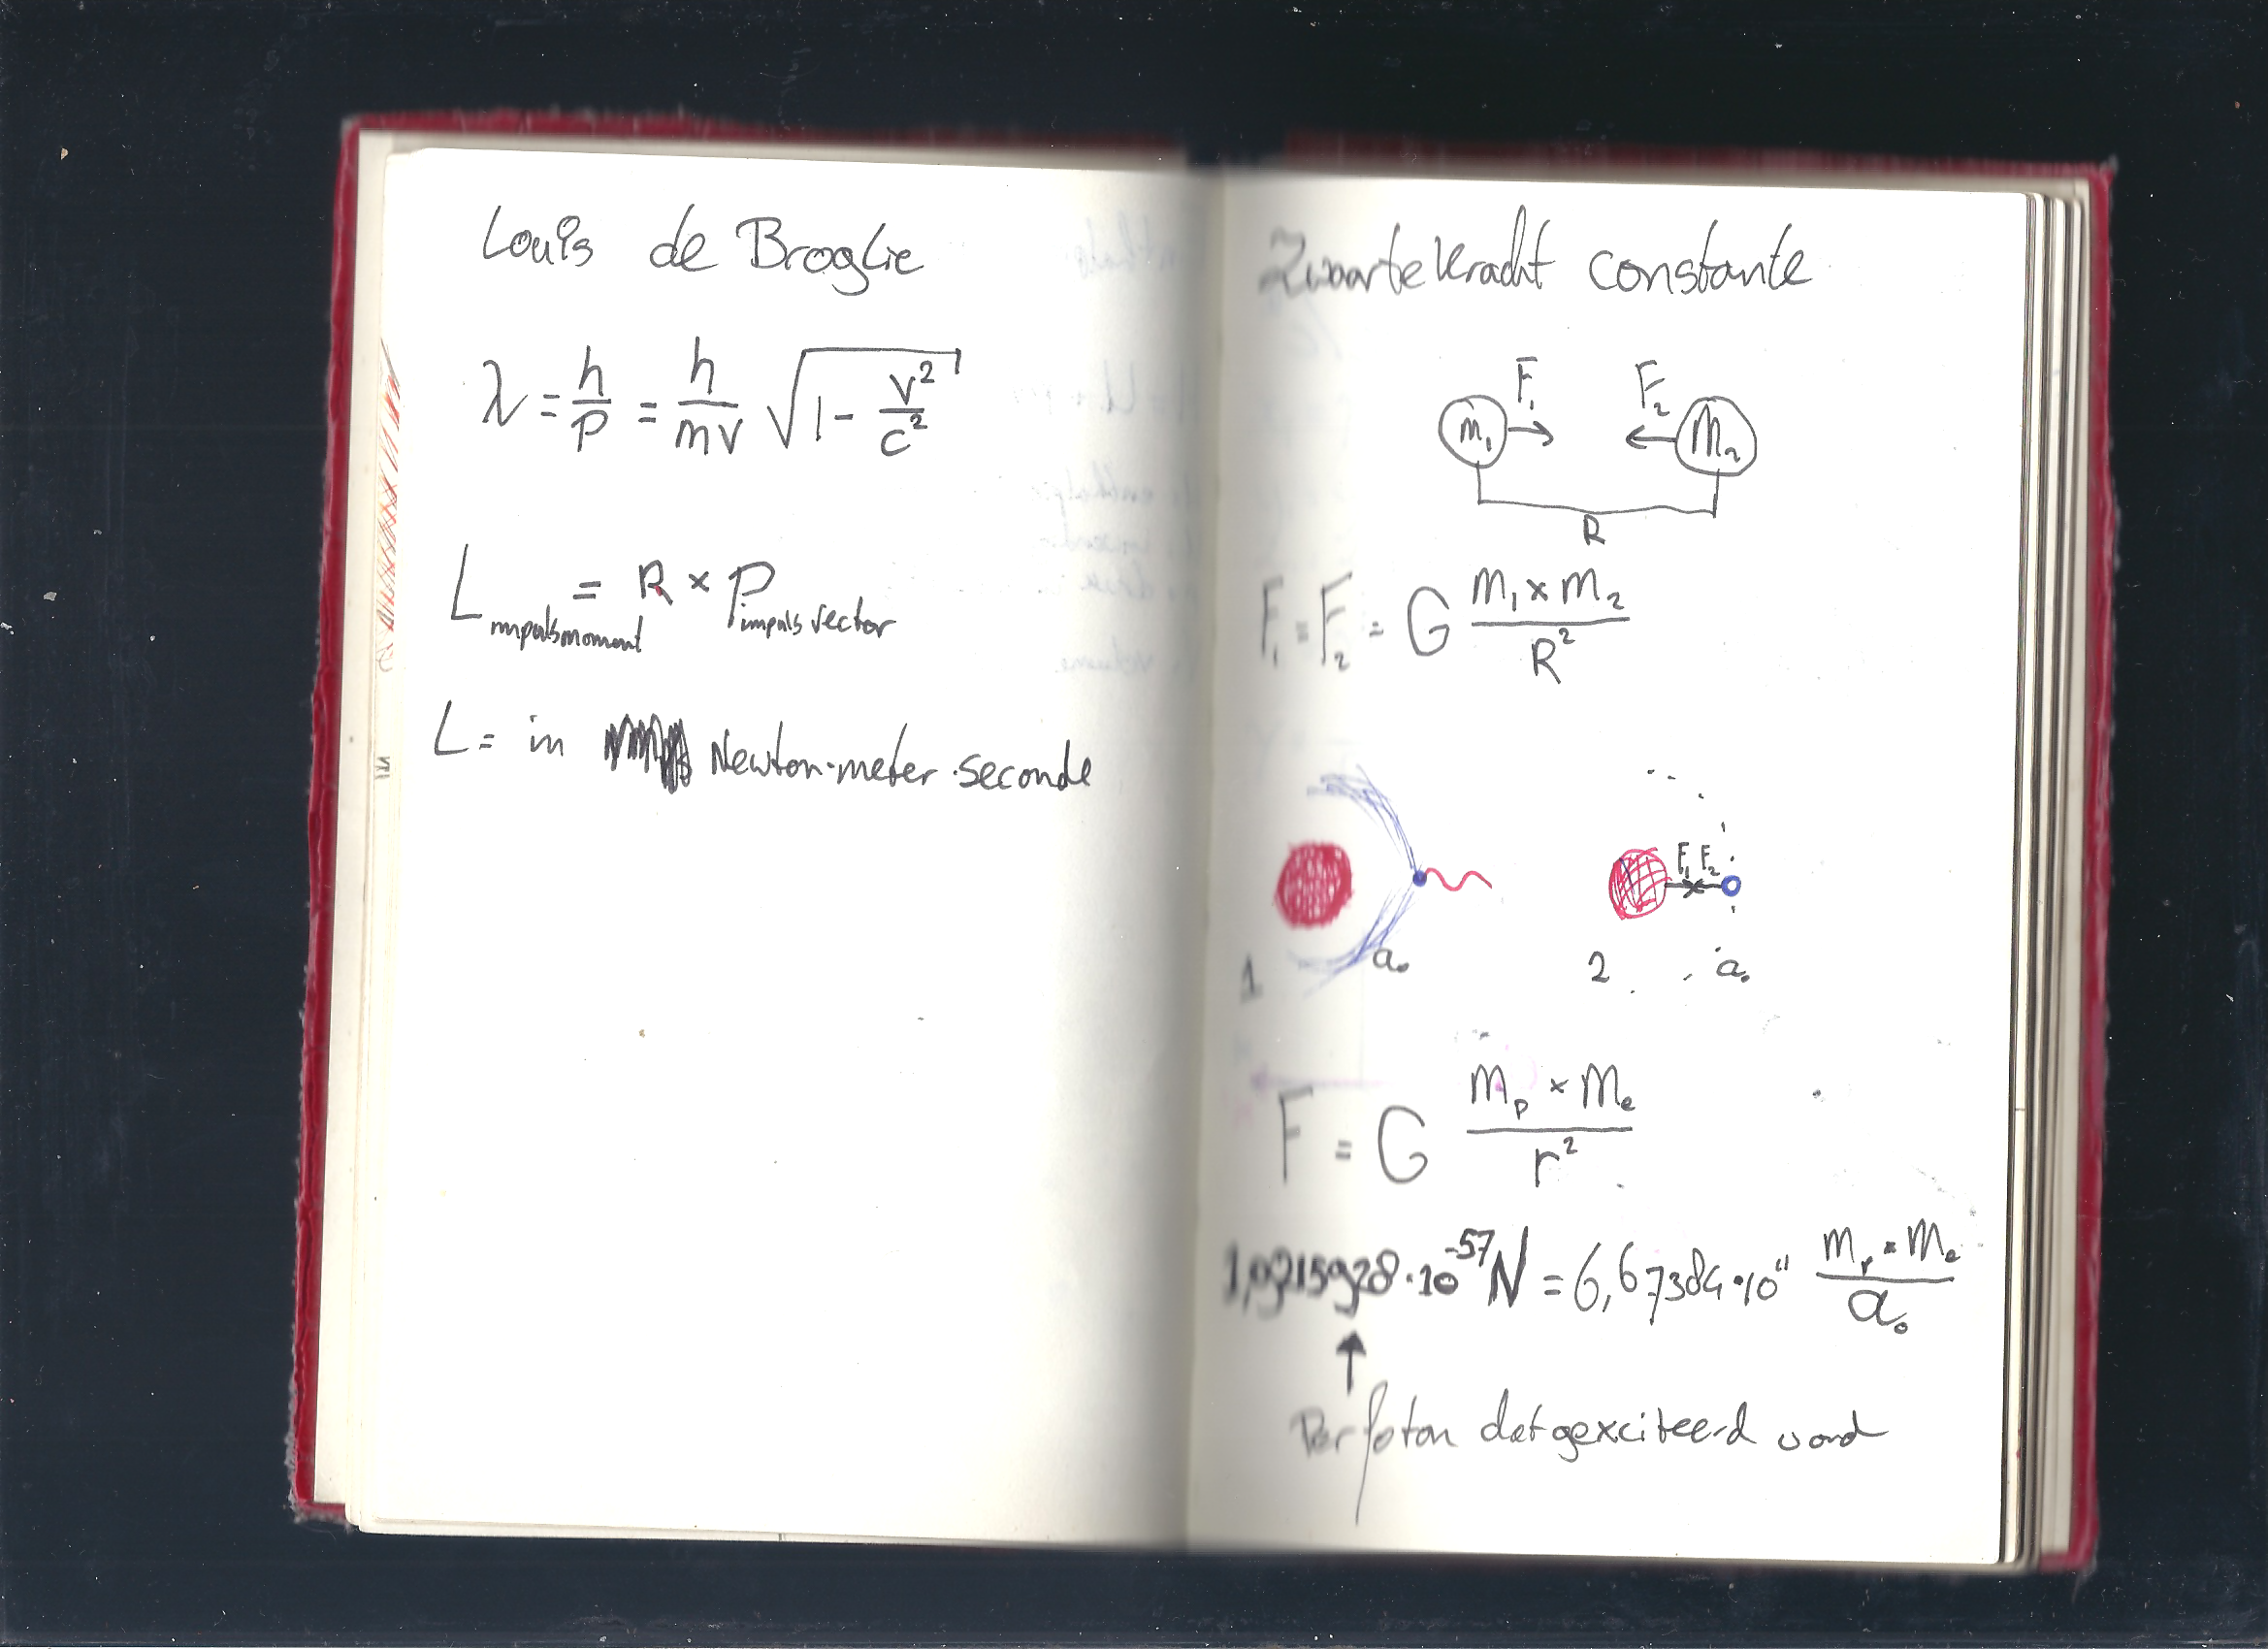 Louis de Broglie
λ = h/p = h/mv √(1 - v²/c²)
L impulsmoment = R × P impulsvector
L = in Newton·meter·seconde
Zwaartekracht constante
F₁ F₂
m₁ m₂
R
F₁ = F₂ = G m₁ × m₂ / R²
F₁ F₂
1 a₀ 2 a₀
F = G m_p × m_e / r²
1,9215928·10⁻⁵⁷ N = 6,67384·10¹¹ m_p × m_e / a₀
Per foton dat gexciteerd word